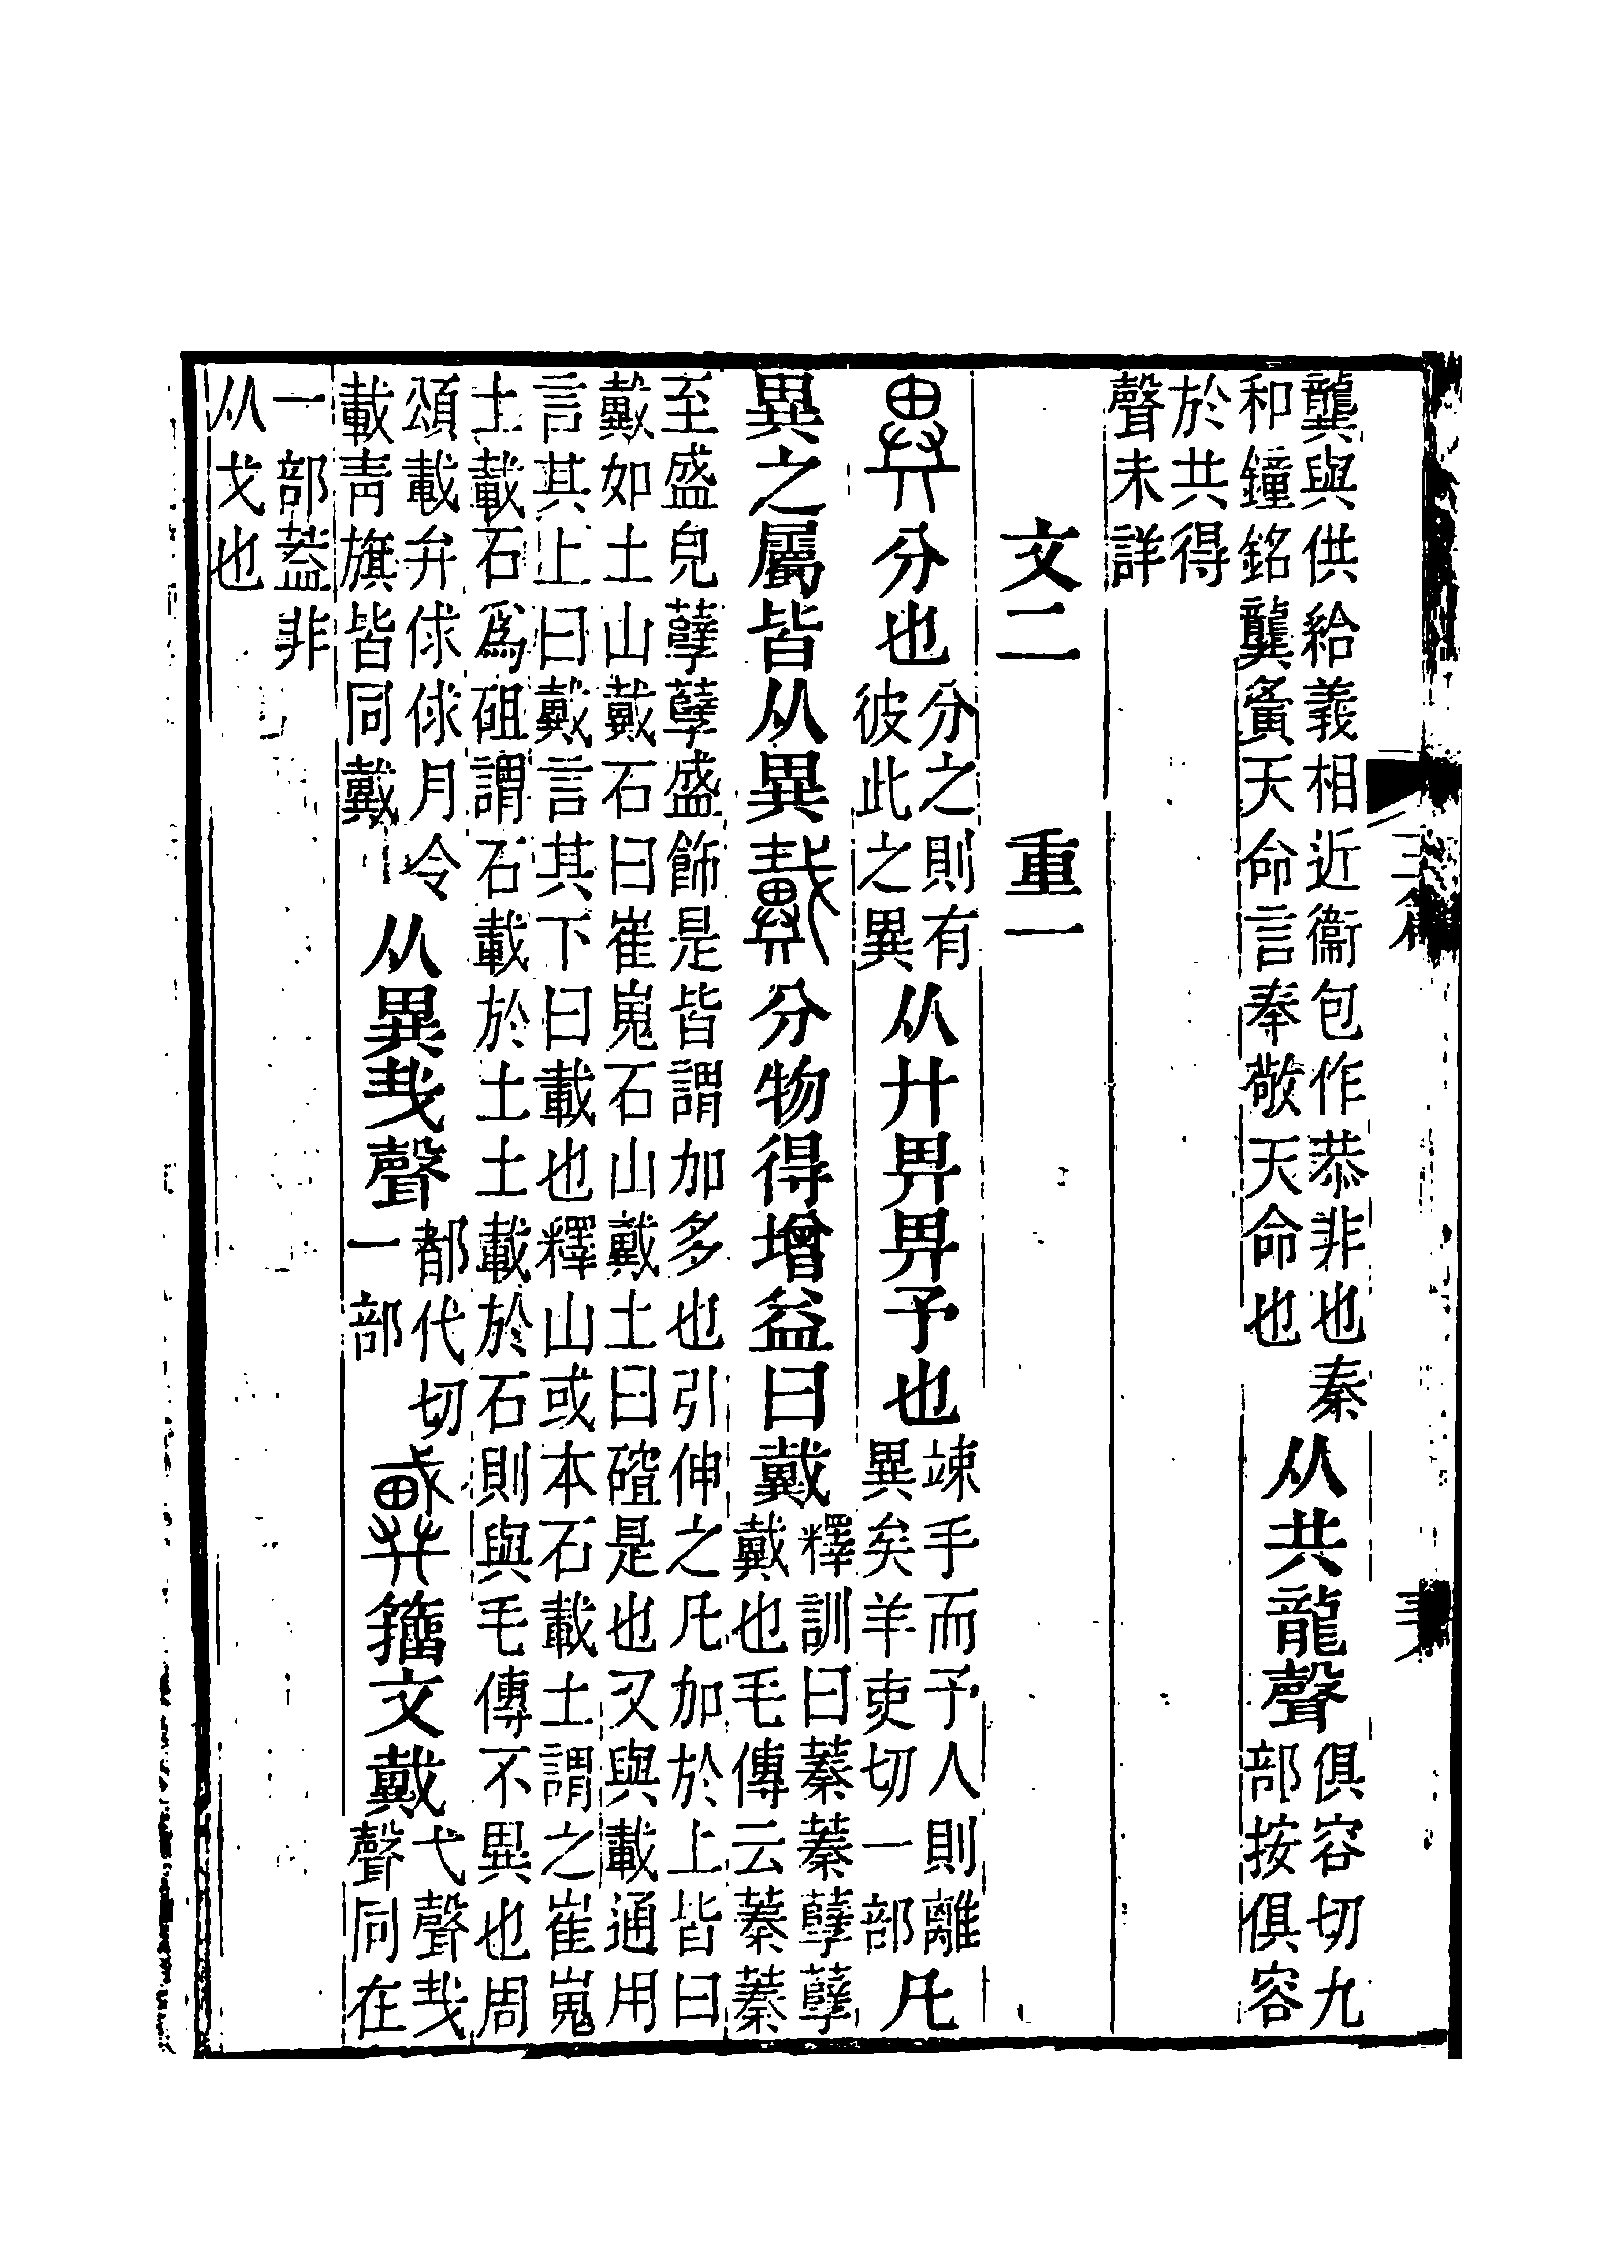 龔與供給義相近衞包作恭非也秦
和鐘銘龔夤天命言奉敬天命也
从共龍聲
俱容切九
部按俱容
於共得
聲未詳
文二 重一
異分也
分之則有
彼此之異
从廾畀畀予也
竦手而予人則離
異矣羊吏切一部
凡
異之屬皆从異
戴分物得增益曰戴
釋訓曰蓁蓁孼孼
戴也毛傳云蓁蓁
至盛皃孼孼盛飾是皆謂加多也引伸之凡加於上皆曰
戴如土山戴石曰崔嵬石山戴土曰是也又與載通用
言其上曰戴言其下曰載也釋山或本石載土謂之崔嵬
土載石爲砠謂石載於土土載於石則與毛傳不異也周
頌載弁俅俅月令
載靑旗皆同戴
从異𢦏聲
都代切
一部
籒文戴
弋聲𢦏
聲同在
一部葢非
从戈也